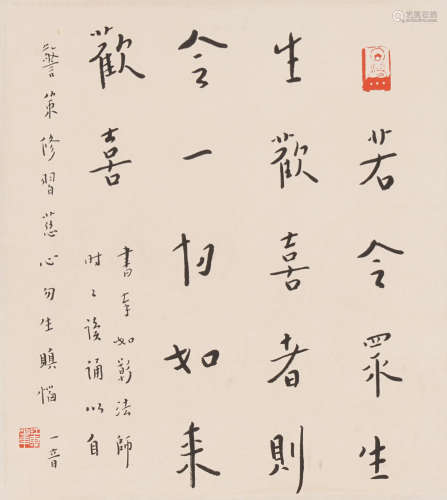 若令眾生
生歡喜者則
令一切如来
歡喜
書奉如影法師
時々讀誦以自
警策修習慈心勿生瞋惱
一音